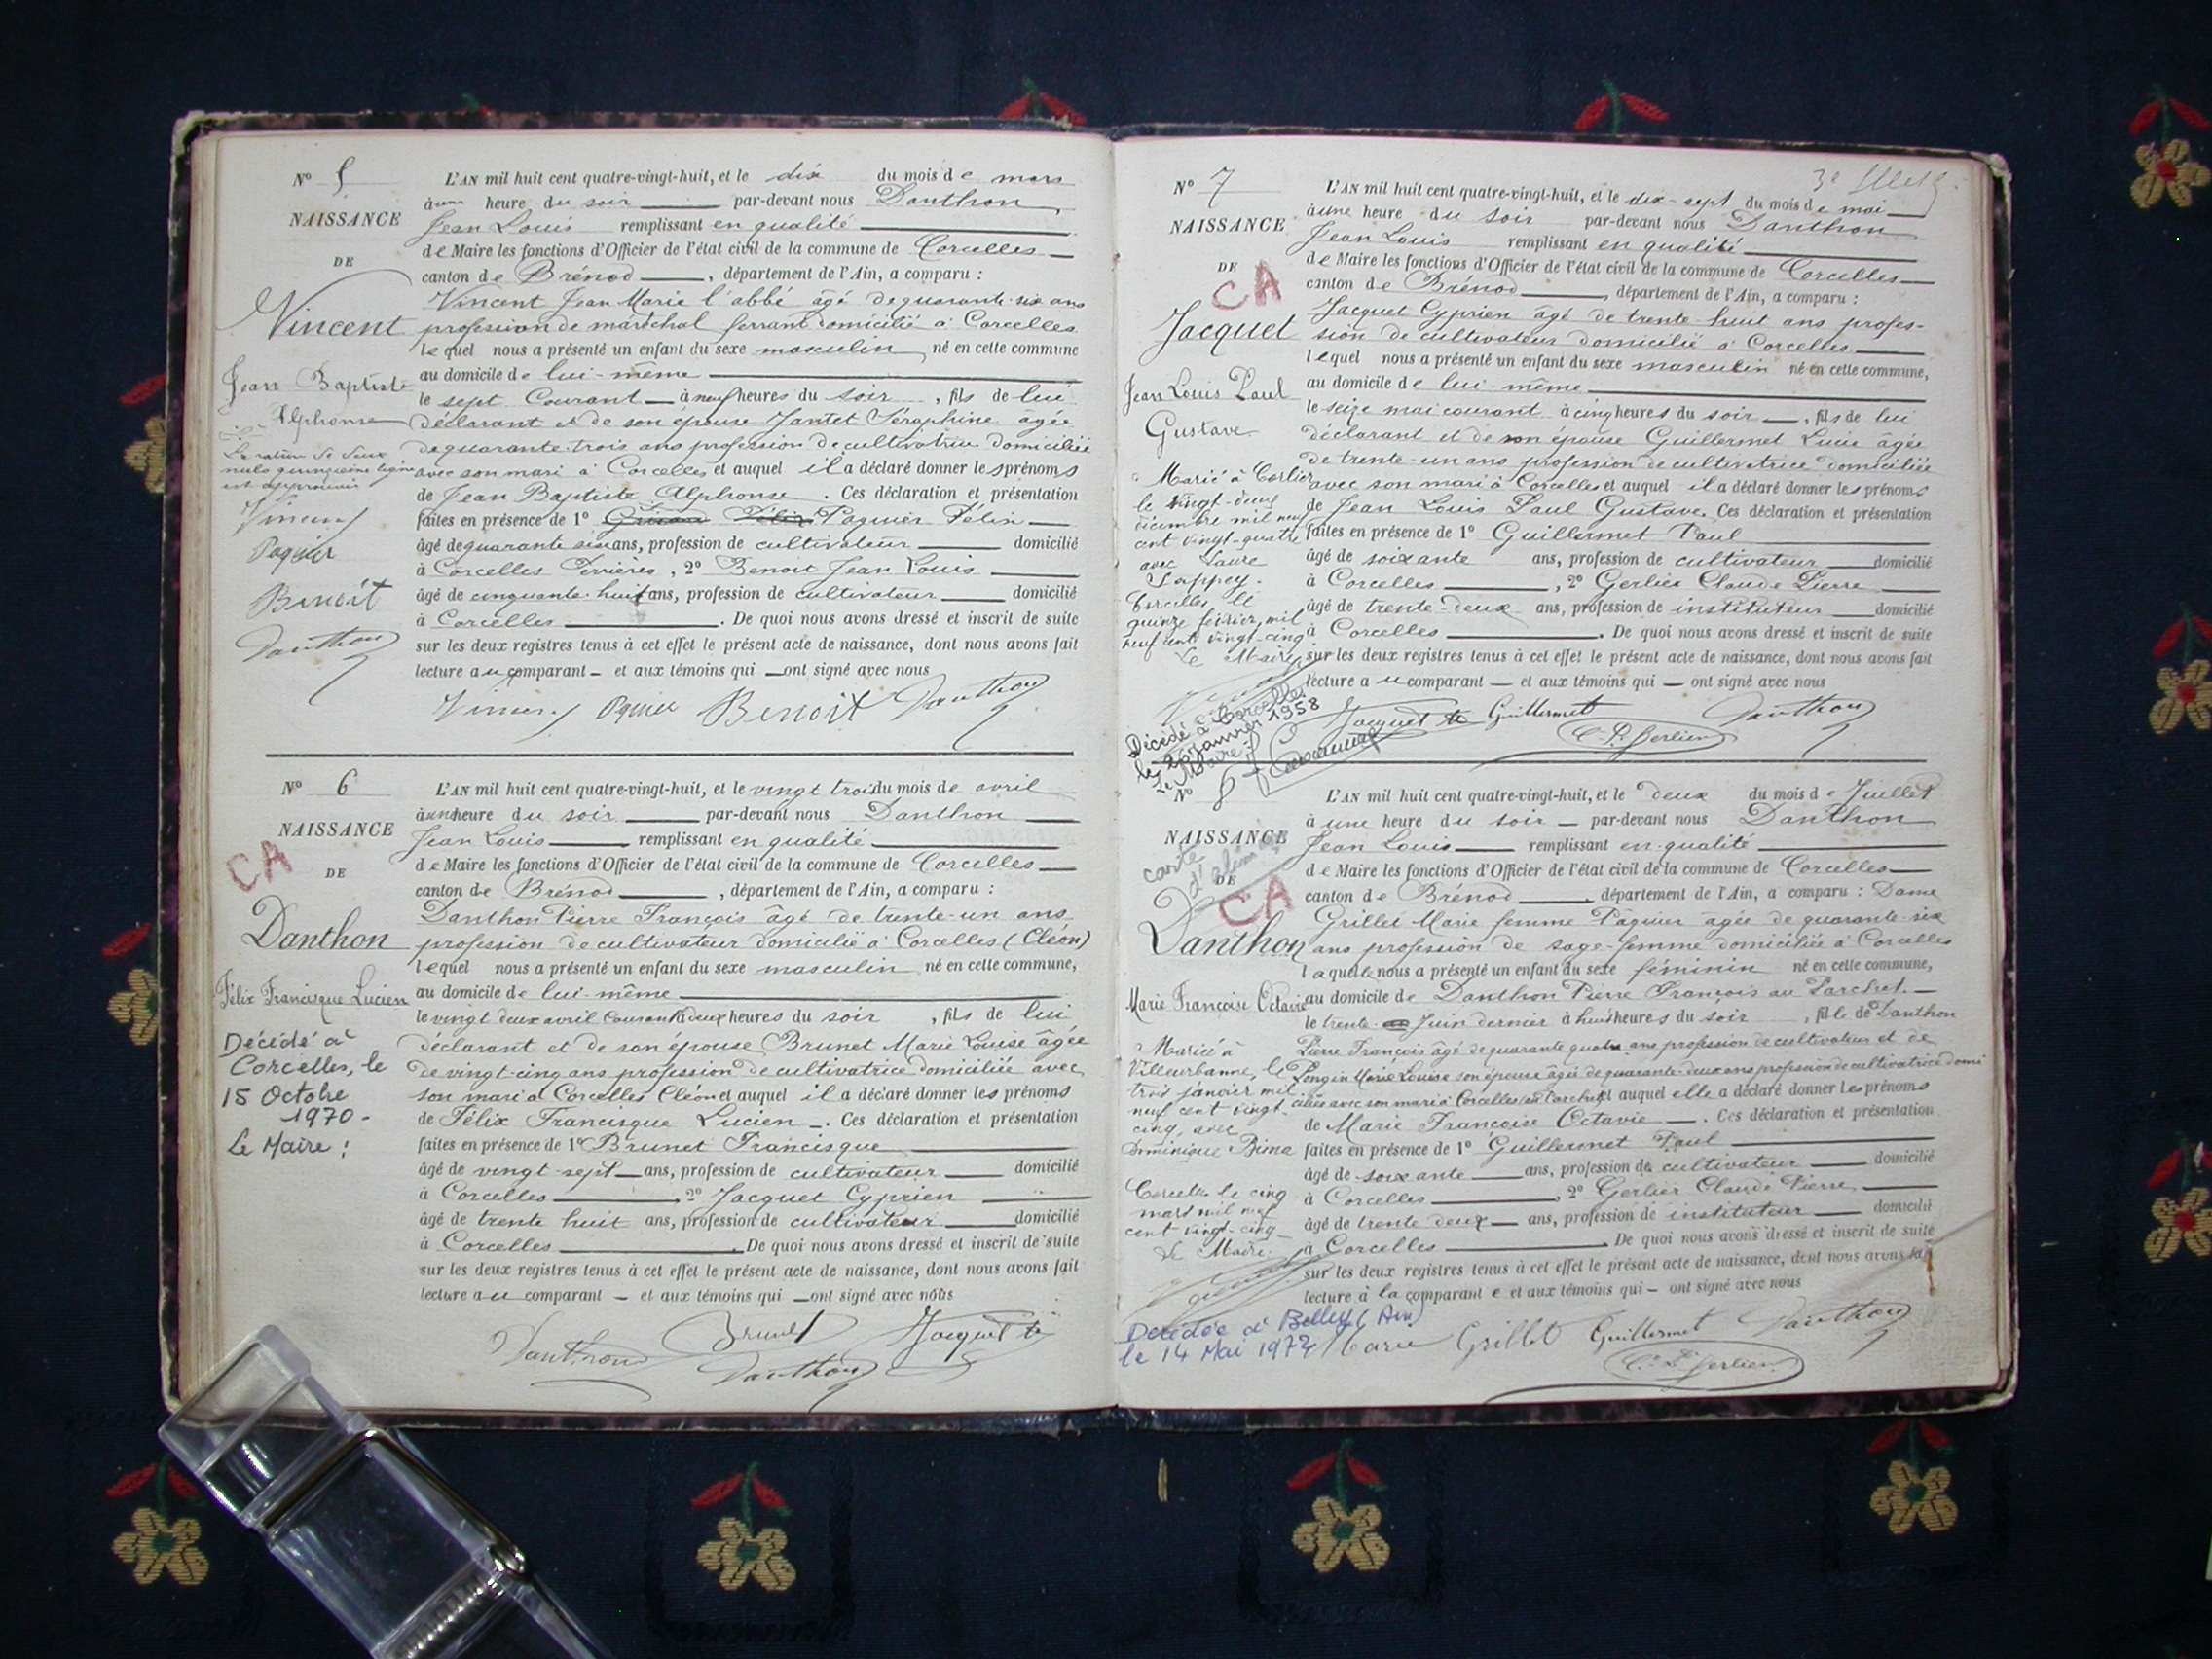 N° 5
NAISSANCE
DE
Vincent
Jean Baptiste
Alphonse
La rature de deux
mots quinzième ligne
est approuvée
Vincent
Paquier
Benoit
Danthon
L'AN mil huit cent quatre-vingt-huit, et le dix du mois de mars
à une heure du soir par-devant nous Danthon
Jean Louis remplissant en qualité
de Maire les fonctions d'Officier de l'état civil de la commune de Corcelles
canton de Brénod, département de l'Ain, a comparu :
Vincent Jean Marie l'abbé âgé de quarante-six ans
profession de maréchal ferrant domicilié à Corcelles
lequel nous a présenté un enfant du sexe masculin né en cette commune
au domicile de lui-même
le sept Courant à neuf heures du soir, fils de lui
déclarant et de son épouse Jantet Séraphine âgée
de quarante-trois ans profession de cultivatrice domiciliée
avec son mari à Corcelles et auquel il a déclaré donner les prénoms
de Jean Baptiste Alphonse. Ces déclaration et présentation
faites en présence de 1° Paquier Félix
âgé de quarante six ans, profession de cultivateur domicilié
à Corcelles Perrières, 2° Benoit Jean Louis
âgé de cinquante-huit ans, profession de cultivateur domicilié
à Corcelles. De quoi nous avons dressé et inscrit de suite
sur les deux registres tenus à cet effet le présent acte de naissance, dont nous avons fait
lecture au comparant et aux témoins qui ont signé avec nous
Vincent Paquier Benoit Danthon
N° 6
NAISSANCE
CA
DE
Danthon
Félix Francisque Lucien
Décédé à
Corcelles, le
15 Octobre
1970 -
Le Maire :
L'AN mil huit cent quatre-vingt-huit, et le vingt trois du mois de avril
à une heure du soir par-devant nous Danthon
Jean Louis remplissant en qualité
de Maire les fonctions d'Officier de l'état civil de la commune de Corcelles
canton de Brénod, département de l'Ain, a comparu :
Danthon Pierre François âgé de trente-un ans
profession de cultivateur domicilié à Corcelles (Cléon)
lequel nous a présenté un enfant du sexe masculin né en cette commune,
au domicile de lui-même
le vingt deux avril Courant à deux heures du soir, fils de lui
déclarant et de son épouse Brunet Marie Louise âgée
de vingt-cinq ans profession de cultivatrice domiciliée avec
son mari à Corcelles Cléon et auquel il a déclaré donner les prénoms
de Félix Francisque Lucien. Ces déclaration et présentation
faites en présence de 1° Brunet Francisque
âgé de vingt-sept ans, profession de cultivateur domicilié
à Corcelles 2° Jacquet Cyprien
âgé de trente huit ans, profession de cultivateur domicilié
à Corcelles. De quoi nous avons dressé et inscrit de suite
sur les deux registres tenus à cet effet le présent acte de naissance, dont nous avons fait
lecture au comparant et aux témoins qui ont signé avec nous
Danthon Brunet Jacquet
Danthon
N° 7
NAISSANCE
DE
CA
Jacquet
Jean Louis Paul
Gustave
Marié à Corlier
le vingt-deux
décembre mil neuf
cent vingt-quatre
avec Laure
Pappey.
Corcelles le
quinze février mil
neuf cent vingt-cinq
Le Maire,
Décédé à Corcelles
le janvier 1958
Le Maire :
3e
L'AN mil huit cent quatre-vingt-huit, et le dix-sept du mois de mai
à une heure du soir par-devant nous Danthon
Jean Louis remplissant en qualité
de Maire les fonctions d'Officier de l'état civil de la commune de Corcelles
canton de Brénod, département de l'Ain, a comparu :
Jacquet Cyprien âgé de trente-huit ans profes-
sion de cultivateur domicilié à Corcelles
lequel nous a présenté un enfant du sexe masculin né en cette commune,
au domicile de lui-même
le seize mai courant à cinq heures du soir, fils de lui
déclarant et de son épouse Guillermet Lucie âgée
de trente-un ans profession de cultivatrice domiciliée
avec son mari à Corcelles et auquel il a déclaré donner les prénoms
de Jean Louis Paul Gustave. Ces déclaration et présentation
faites en présence de 1° Guillermet Paul
âgé de soixante ans, profession de cultivateur domicilié
à Corcelles, 2° Gerlier Claude Pierre
âgé de trente-deux ans, profession de instituteur domicilié
à Corcelles. De quoi nous avons dressé et inscrit de suite
sur les deux registres tenus à cet effet le présent acte de naissance, dont nous avons fait
lecture au comparant et aux témoins qui ont signé avec nous
Jacquet Guillermet Danthon
C. P. Gerlier
N° 8
NAISSANCE
carte
DE
CA
Danthon
Marie Françoise Octavie
Mariée à
Villeurbanne, le
trois janvier mil
neuf cent vingt-
cinq, avec
Dominique Bima
Corcelles le cinq
mars mil neuf
cent vingt-cinq
Le Maire.
Décédée à Belley (Ain)
le 14 Mai 1972
L'AN mil huit cent quatre-vingt-huit, et le deux du mois de Juillet
à une heure du soir par-devant nous Danthon
Jean Louis remplissant en qualité
de Maire les fonctions d'Officier de l'état civil de la commune de Corcelles
canton de Brénod, département de l'Ain, a comparu : Dame
Grillet Marie femme Pâquier âgée de quarante-six
ans profession de sage-femme domiciliée à Corcelles
laquelle nous a présenté un enfant du sexe féminin né en cette commune,
au domicile de Danthon Pierre François au Parchet.
le trente Juin dernier à huit heures du soir, fille de Danthon
Pierre François âgé de quarante quatre ans profession de cultivateur et de
Longin Marie Louise son épouse âgée de quarante-deux ans profession de cultivatrice domi
ciliée avec son mari à Corcelles (au Parchet) et auquel elle a déclaré donner les prénoms
de Marie Françoise Octavie. Ces déclaration et présentation
faites en présence de 1° Guillermet Paul
âgé de soixante ans, profession de cultivateur domicilié
à Corcelles, 2° Gerlier Claude Pierre
âgé de trente deux ans, profession de instituteur domicilié
à Corcelles. De quoi nous avons dressé et inscrit de suite
sur les deux registres tenus à cet effet le présent acte de naissance, dont nous avons fait
lecture à la comparante et aux témoins qui ont signé avec nous
Marie Grillet Guillermet Danthon
C. P. Gerlier